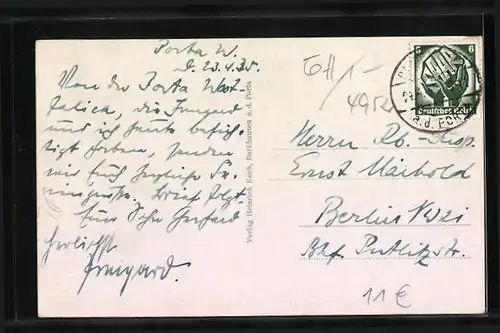 Porta W.
d. 23.4.35.
Von der Porta West-
falica, die Irmgard
und ich heute besich-
tigt haben, senden
wir Euch herzliche
Brief folgt.
Euer Sohn Gerhard
Herlichst
Irmgard.
Verlag Heinrich Koch, Barkhausen a. d. Porta
6 6
Deutsches Reich
a.d. PORTA
Herrn Rb.-Insp.
Ernst Maibold
Berlin NW21
Bhf. Putlitzstr.
11 €